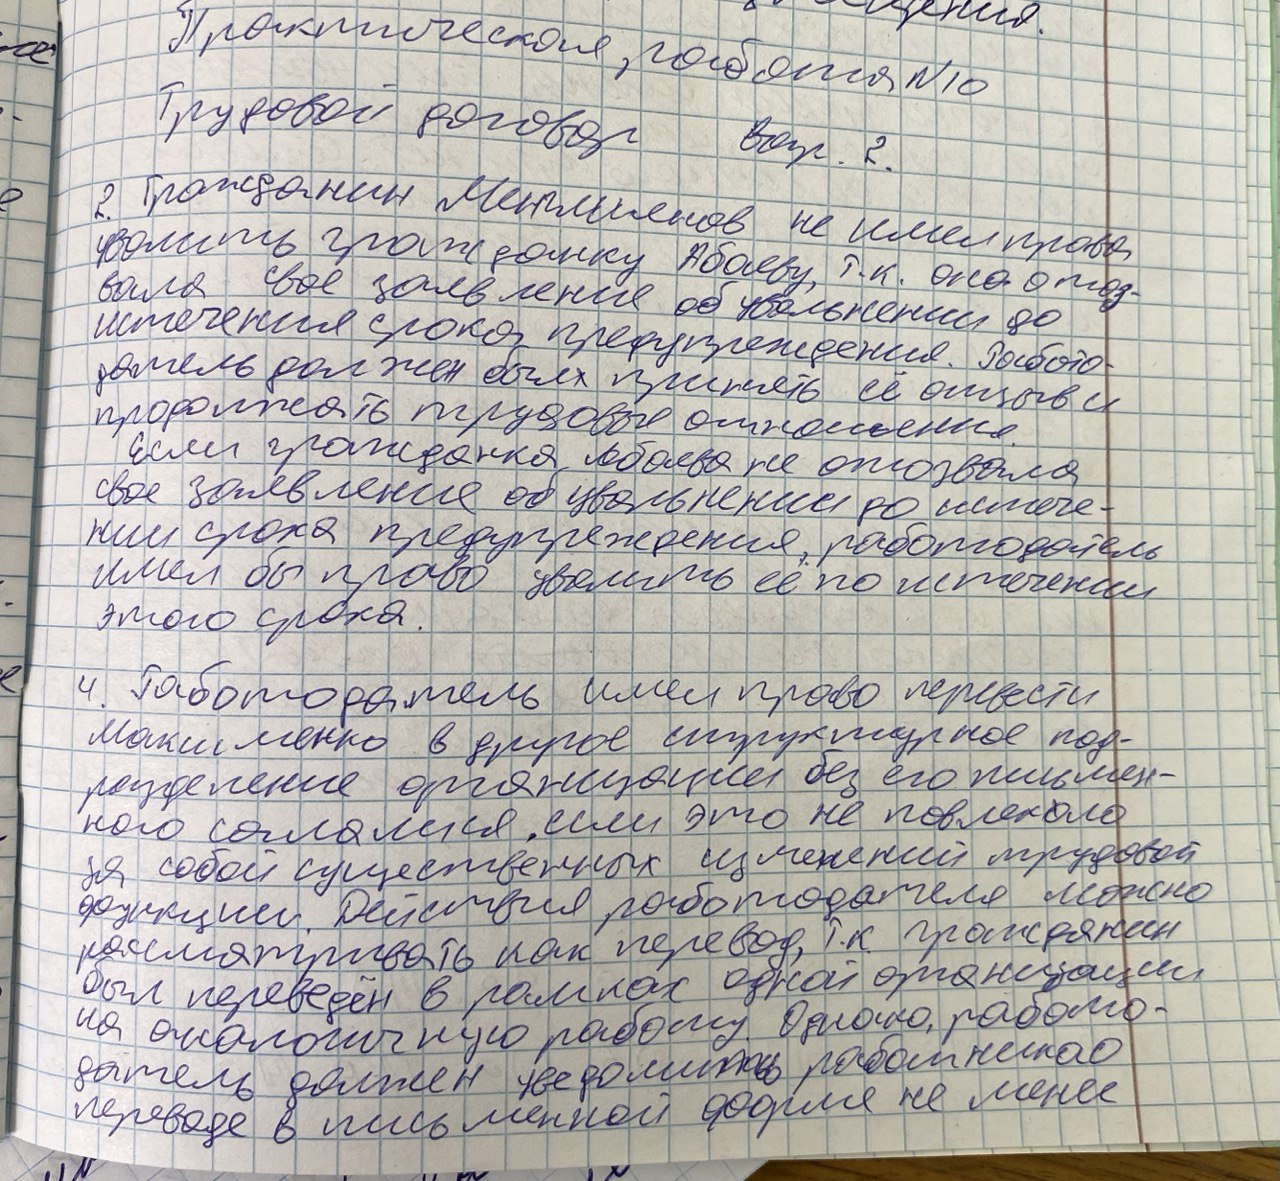 щения.
Практическая работа N10
Трудовой договор Вар. 2.
2. Гражданин не имел права
уволить гражданку Абаеву, т.к. она отоз-
вала своё заявление об увольнении до
истечения срока предупреждения. Работо-
датель должен был принять её отзыв и
продолжать трудовые отношения.
Если гражданка Абаева не отозвала
свое заявление об увольнении до истече-
нии срока предупреждения, работодатель
имел бы право уволить её по истечении
этого срока.
4. Работодатель имел право перевести
Максименко в другое структурное под-
разделение организации без его письмен-
ного согласия, если это не повлекло
за собой существенных изменений трудовой
функции. Действия работодателя можно
рассматривать как перевод, т.к гражданин
был переведён в рамках одной организации
на аналогичную работу. Однако, работо-
датель должен уведомить работника о
переводе в письменной форме не менее